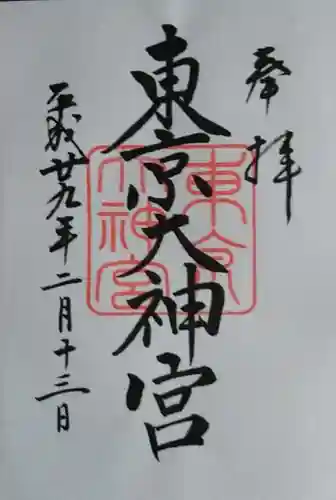 奉拝
東京大神宮
東京
大神宮
平成廿九年二月十三日